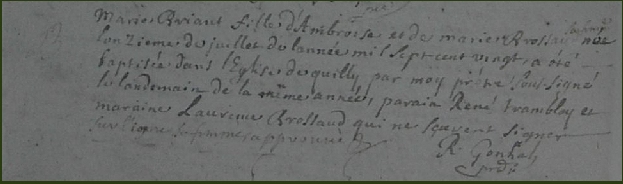 Marie Briant fille d'Ambroise et de marie Brossay née
lonzieme de juillet de lannée mil sept cent vingt, a été
baptisée dans l'Eglise de quilly par moy prêtre sous signé
le landemain de la même année, parain René tramblay et
maraine Laurence Brossaud qui ne sçavent signer
R. Gouhat